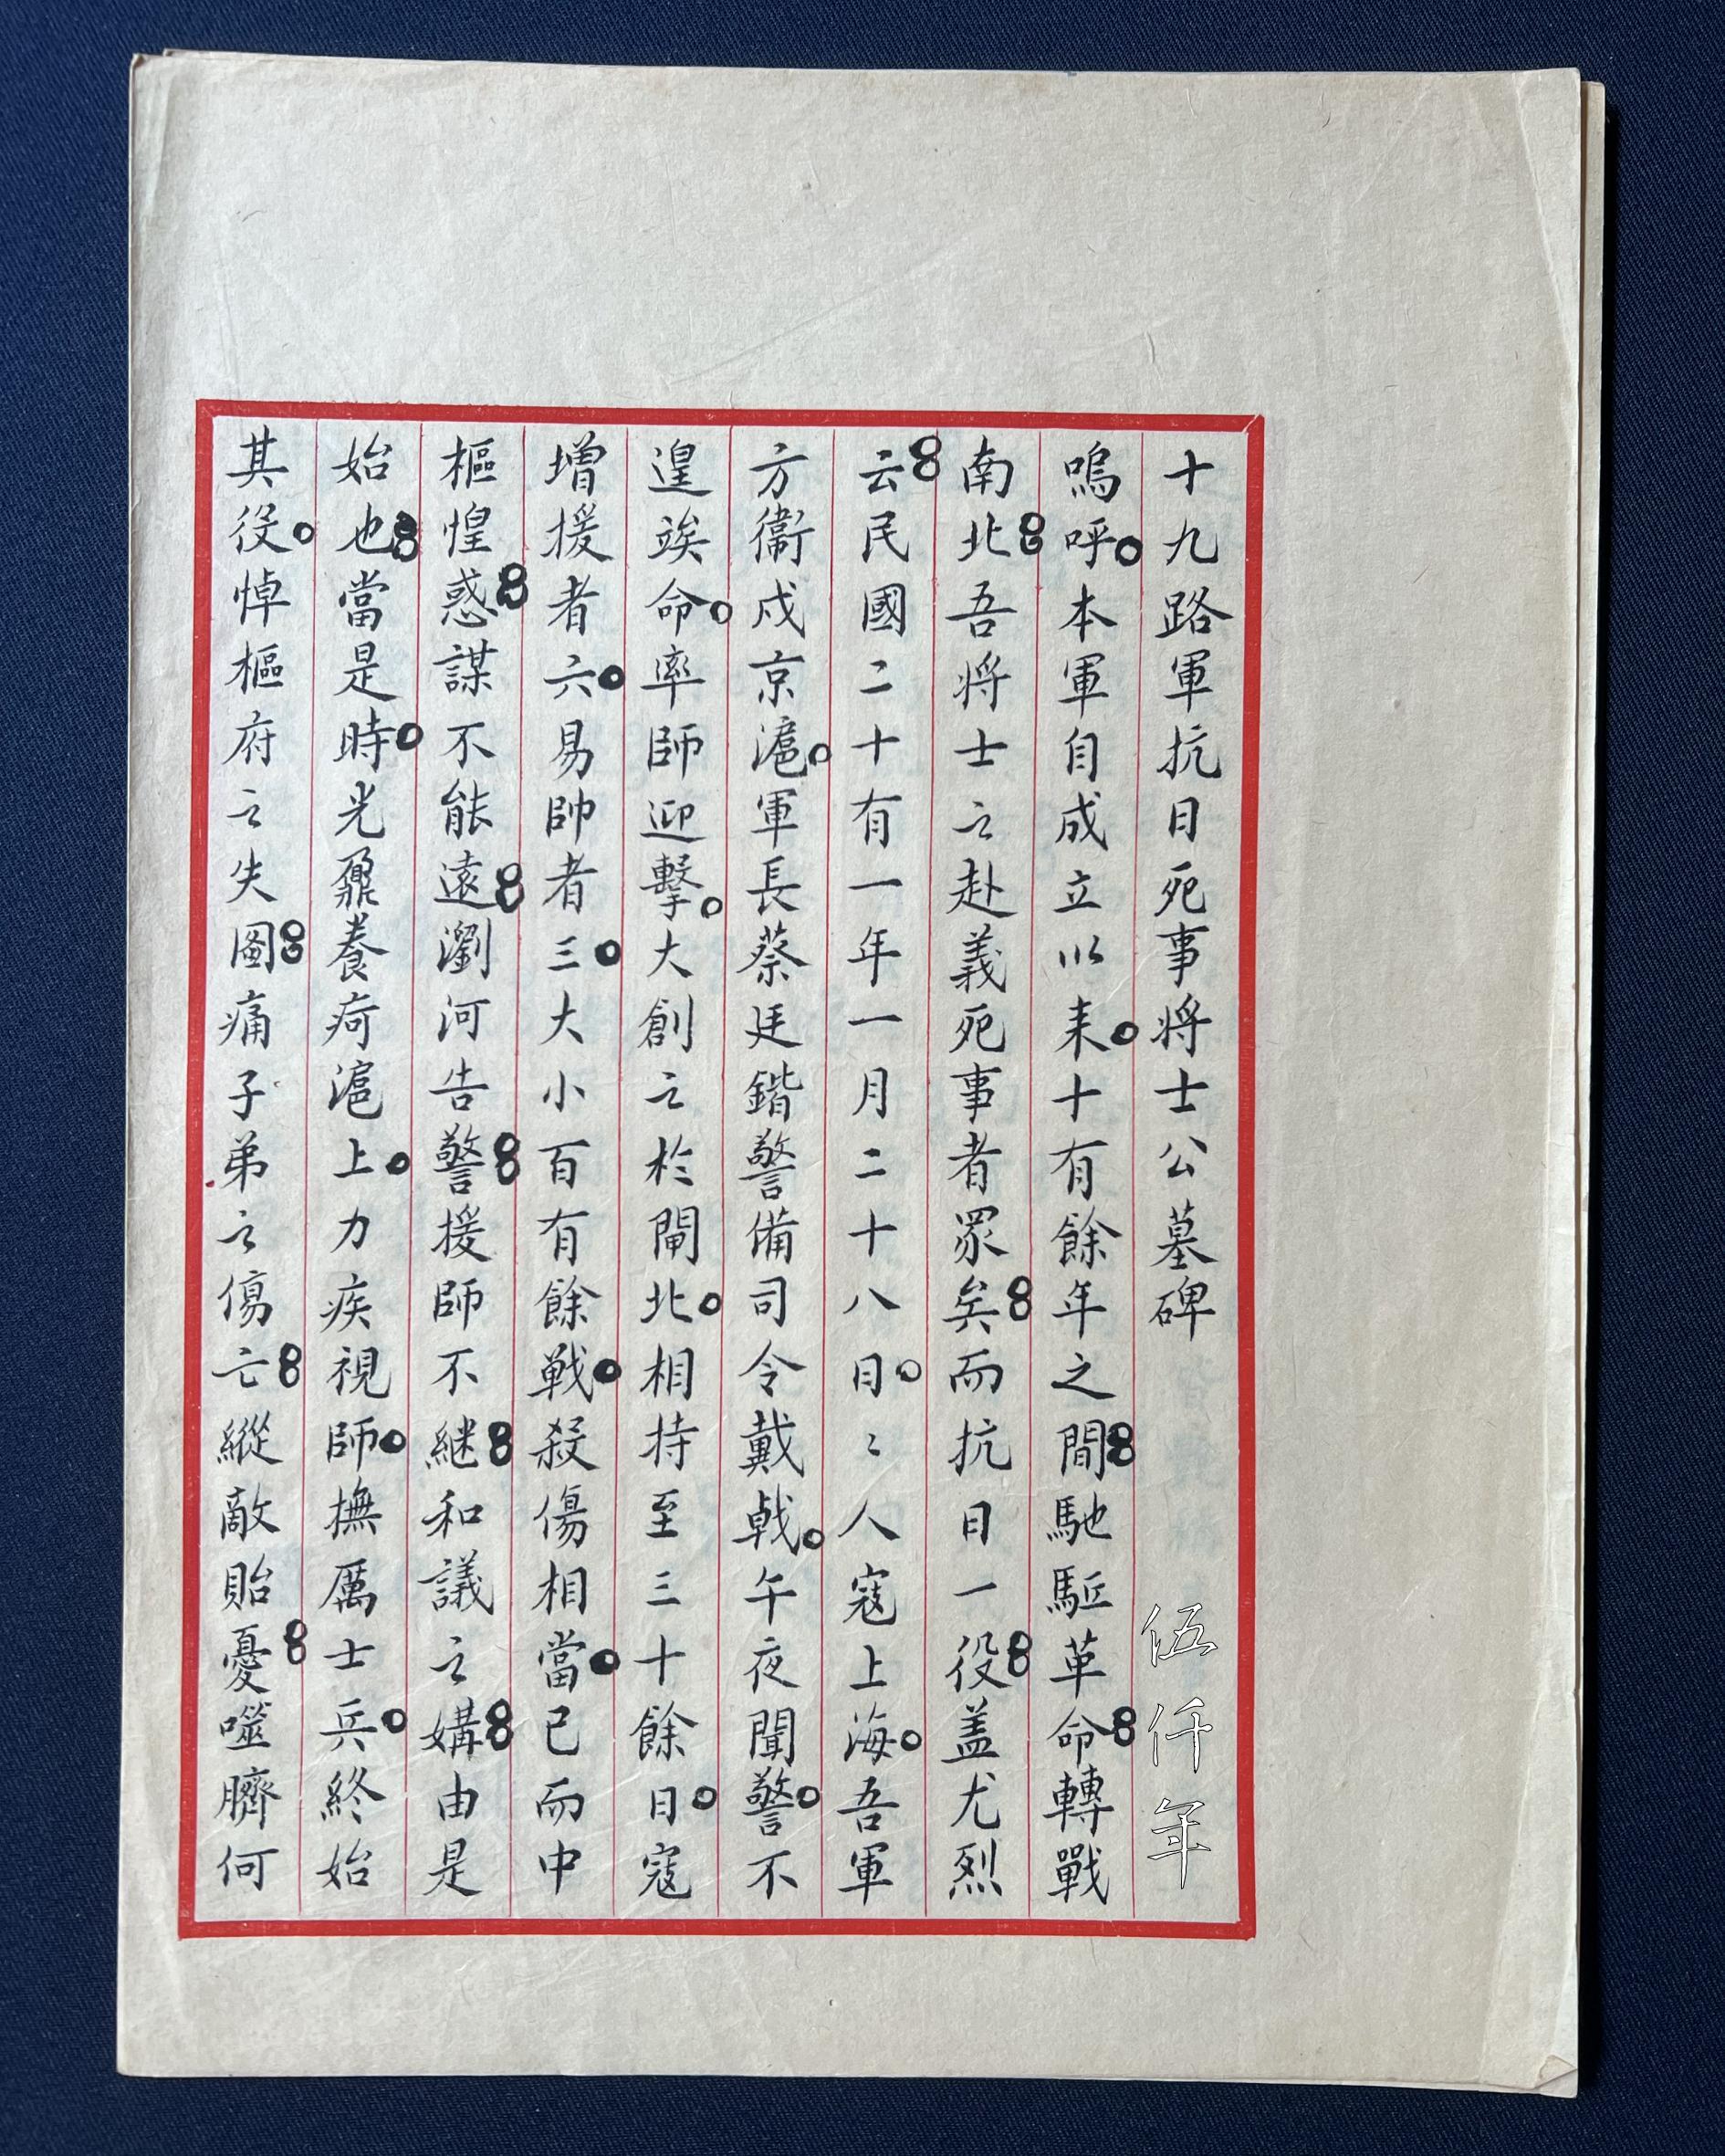 十九路軍抗日死事將士公墓碑
伍仟年
嗚呼。本軍自成立以来。十有餘年之間馳駈革命轉戰
南北吾将士之赴義死事者眾矣而抗日一役盖尤烈
云民國二十有一年一月二十八日。〻人寇上海。吾軍
方衞戍京滬。軍長蔡廷鍇警備司令戴戟。午夜聞警。不
遑竢命。率師迎擊。大創之於閘北。相持至三十餘日。寇
增援者六。易帥者三。大小百有餘戦。殺傷相當。已而中
樞惶惑謀不能遠瀏河告警援師不継和議之媾由是
始也當是時。光鼐養疴滬上。力疾視師。撫厲士兵。終始
其役。悼樞府之失圖痛子弟之傷亡縱敵貽憂噬臍何